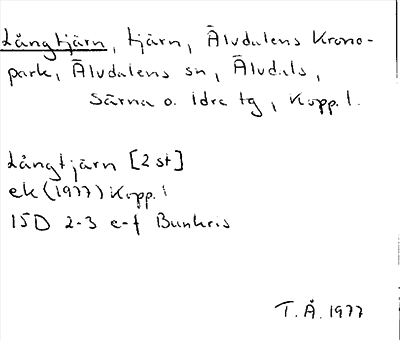 Långtjärn, tjärn, Älvdalens Krono-
park, Älvdalens sn, Älvdals,
Särna o. Idre tg, Kopp. l.
Långtjärn [2 st]
ek (1977) Kopp. l
15D 2-3 e-f Bunkris
T.Å. 1977